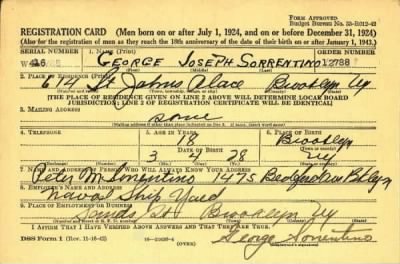 FORM APPROVED
Budget Bureau No. 33-R012-42
REGISTRATION CARD (Men born on or after July 1, 1924, and on or before December 31, 1924)
(Also for the registration of men as they reach the 18th anniversary of the date of their birth on or after January 1, 1943.)
GEORGE JOSEPH SORRENTINO 12788
(Print) (First) (Middle) (Last)
2. PLACE OF RESIDENCE (Print)
614 St. Johns Place Brooklyn Ny
[THE PLACE OF RESIDENCE GIVEN ON LINE 2 ABOVE WILL DETERMINE LOCAL BOARD
JURISDICTION; LINE 2 OF REGISTRATION CERTIFICATE WILL BE IDENTICAL]
3. MAILING ADDRESS
same
4. TELEPHONE 5. AGE IN YEARS 6. PLACE OF BIRTH
18 Brooklyn
DATE OF BIRTH
3 4 Ny
7. NAME AND ADDRESS OF PERSON WHO WILL ALWAYS KNOW YOUR ADDRESS
1475 Bklyn
8. EMPLOYER'S NAME AND ADDRESS
Naval Ship Yard
9. PLACE OF EMPLOYMENT OR BUSINESS
Sands St Brooklyn Ny
I AFFIRM THAT I HAVE VERIFIED ABOVE ANSWERS AND THAT THEY ARE TRUE.
DSS Form 1
George Sorrentino